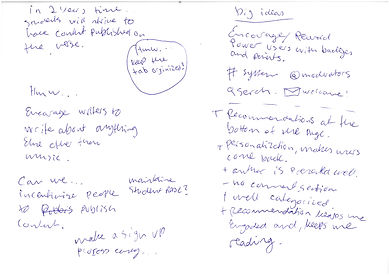 In 2 years time...
students will strive to
have content published on
the verse.
Hmw...
keep the
tab organized?
Hmw...
Encourage writers to
write about anything
Else other then
music.
Can we...
incentivise people
to publish
content.
maintaine
student base?
make a sign up
process easy...
big ideas
Encourage/Reward
Power users with badges
and points.
# system @moderators
search welcome
Recommendations at the
bottom of the page.
+ personalization, makes users
come back.
+ author is presented well.
- no comment section
well categorized.
+ Recommendation keeps me
Engaged and, keeps me
reading.